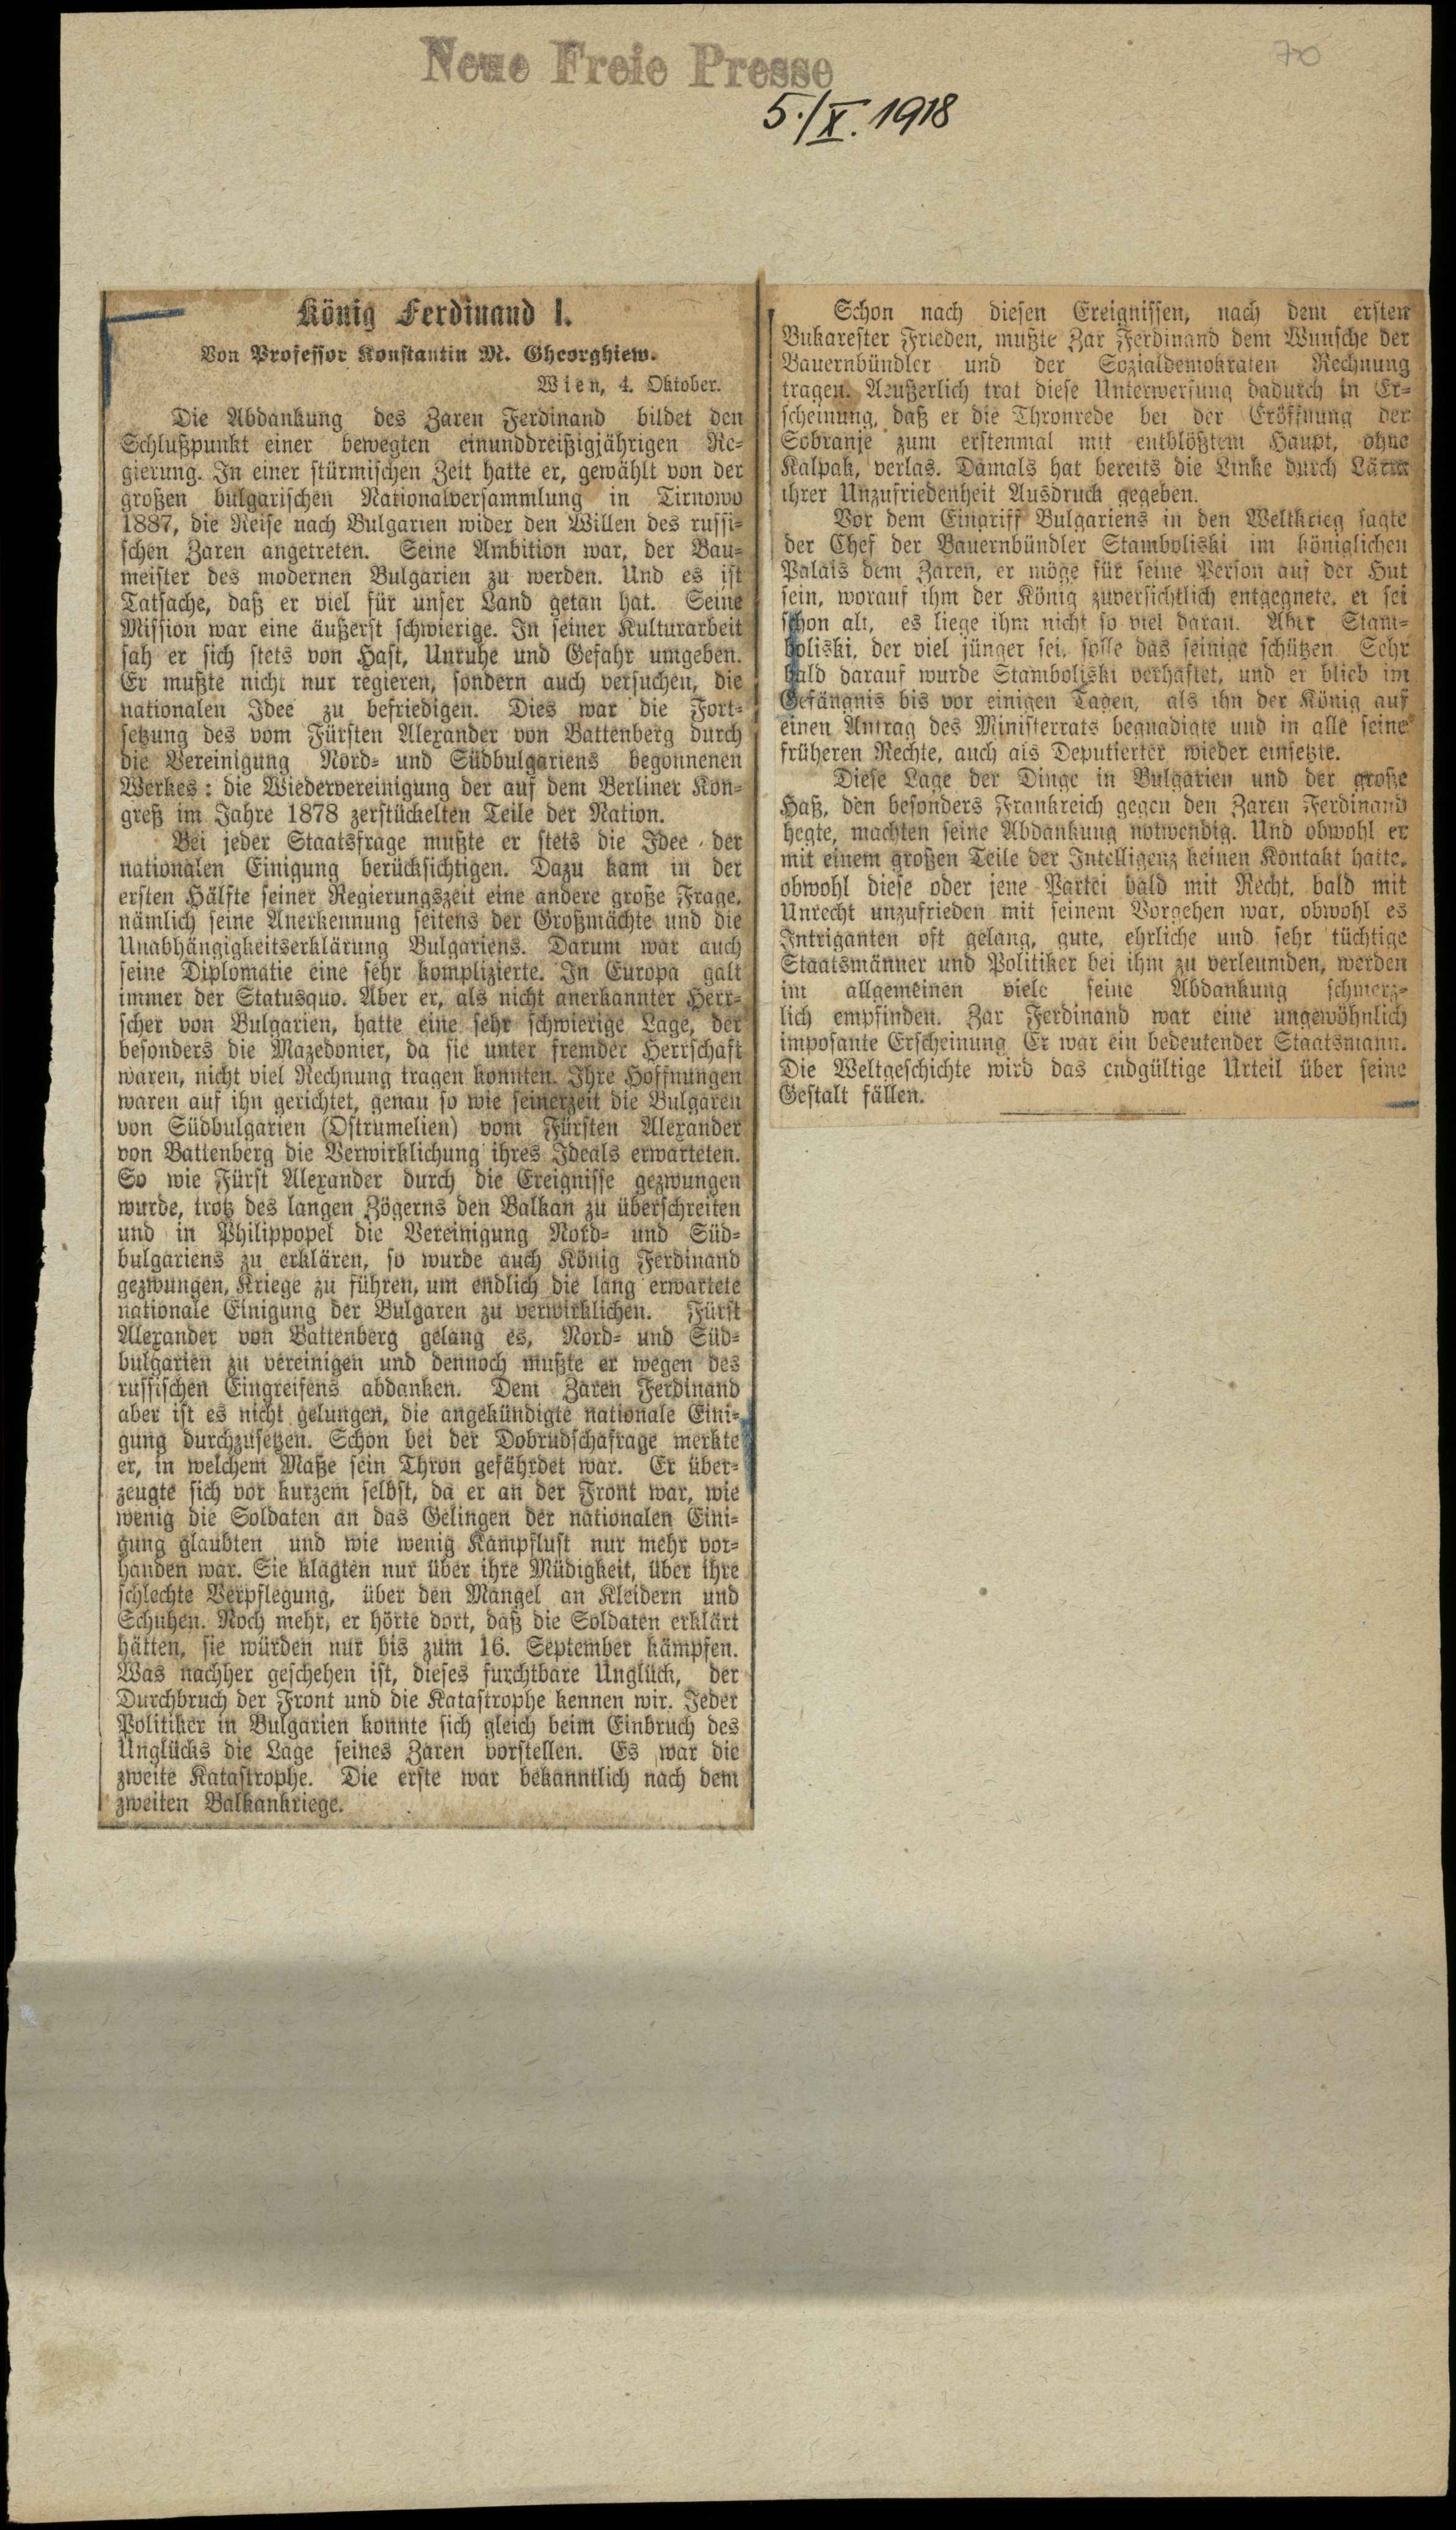 Neue Freie Presse
70
5./X. 1918
König Ferdinand I.
Von Professor Konstantin M. Gheorghiew.
Wien, 4. Oktober.
Die Abdankung des Zaren Ferdinand bildet den
Schlußpunkt einer bewegten einunddreißigjährigen Re-
gierung. In einer stürmischen Zeit hatte er, gewählt von der
großen bulgarischen Nationalversammlung in Tirnowo
1887, die Reise nach Bulgarien wider den Willen des russi-
schen Zaren angetreten. Seine Ambition war, der Bau-
meister des modernen Bulgarien zu werden. Und es ist
Tatsache, daß er viel für unser Land getan hat. Seine
Mission war eine äußerst schwierige. In seiner Kulturarbeit
sah er sich stets von Hast, Unruhe und Gefahr umgeben.
Er mußte nicht nur regieren, sondern auch versuchen, die
nationalen Idee zu befriedigen. Dies war die Fort-
setzung des vom Fürsten Alexander von Battenberg durch
die Vereinigung Nord- und Südbulgariens begonnenen
Werkes: die Wiedervereinigung der auf dem Berliner Kon-
greß im Jahre 1878 zerstückelten Teile der Nation.
Bei jeder Staatsfrage mußte er stets die Idee der
nationalen Einigung berücksichtigen. Dazu kam in der
ersten Hälfte seiner Regierungszeit eine andere große Frage,
nämlich seine Anerkennung seitens der Großmächte und die
Unabhängigkeitserklärung Bulgariens. Darum war auch
seine Diplomatie eine sehr komplizierte. In Europa galt
immer der Statusquo. Aber er, als nicht anerkannter Herr-
scher von Bulgarien, hatte eine sehr schwierige Lage, der
besonders die Mazedonier, da sie unter fremder Herrschaft
waren, nicht viel Rechnung tragen konnten. Ihre Hoffnungen
waren auf ihn gerichtet, genau so wie seinerzeit die Bulgaren
von Südbulgarien (Ostrumelien) vom Fürsten Alexander
von Battenberg die Verwirklichung ihres Ideals erwarteten.
So wie Fürst Alexander durch die Ereignisse gezwungen
wurde, trotz des langen Zögerns den Balkan zu überschreiten
und in Philippopel die Vereinigung Nord- und Süd-
bulgariens zu erklären, so wurde auch König Ferdinand
gezwungen, Kriege zu führen, um endlich die lang erwartete
nationale Einigung der Bulgaren zu verwirklichen. Fürst
Alexander von Battenberg gelang es, Nord- und Süd-
bulgarien zu vereinigen und dennoch mußte er wegen des
russischen Eingreifens abdanken. Dem Zaren Ferdinand
aber ist es nicht gelungen, die angekündigte nationale Eini-
gung durchzusetzen. Schon bei der Dobrudschafrage merkte
er, in welchem Maße sein Thron gefährdet war. Er über-
zeugte sich vor kurzem selbst, da er an der Front war, wie
wenig die Soldaten an das Gelingen der nationalen Eini-
gung glaubten und wie wenig Kampflust nur mehr vor-
handen war. Sie klagten nur über ihre Müdigkeit, über ihre
schlechte Verpflegung, über den Mangel an Kleidern und
Schuhen. Noch mehr, er hörte dort, daß die Soldaten erklärt
hätten, sie würden nur bis zum 16. September kämpfen.
Was nachher geschehen ist, dieses furchtbare Unglück, der
Durchbruch der Front und die Katastrophe kennen wir. Jeder
Politiker in Bulgarien konnte sich gleich beim Einbruch des
Unglücks die Lage seines Zaren vorstellen. Es war die
zweite Katastrophe. Die erste war bekanntlich nach dem
zweiten Balkankriege.
Schon nach diesen Ereignissen, nach dem ersten
Bukarester Frieden, mußte Zar Ferdinand dem Wunsche der
Bauernbündler und der Sozialdemokraten Rechnung
tragen. Aeußerlich trat diese Unterwerfung dadurch in Er-
scheinung, daß er die Thronrede bei der Eröffnung der
Sobranje zum erstenmal mit entblößtem Haupt, ohne
Kalpak, verlas. Damals hat bereits die Linke durch Lärm
ihrer Unzufriedenheit Ausdruck gegeben.
Vor dem Eingriff Bulgariens in den Weltkrieg sagte
der Chef der Bauernbündler Stamboliski im königlichen
Palais dem Zaren, er möge für seine Person auf der Hut
sein, worauf ihm der König zuversichtlich entgegnete, er sei
schon alt, es liege ihm nicht so viel daran. Aber Stam-
boliski, der viel jünger sei, solle das seinige schützen. Sehr
bald darauf wurde Stamboliski verhaftet, und er blieb im
Gefängnis bis vor einigen Tagen, als ihn der König auf
einen Antrag des Ministerrats begnadigte und in alle seine
früheren Rechte, auch als Deputierter wieder einsetzte.
Diese Lage der Dinge in Bulgarien und der große
Haß, den besonders Frankreich gegen den Zaren Ferdinand
hegte, machten seine Abdankung notwendig. Und obwohl er
mit einem großen Teile der Intelligenz keinen Kontakt hatte,
obwohl diese oder jene Partei bald mit Recht, bald mit
Unrecht unzufrieden mit seinem Vorgehen war, obwohl es
Intriganten oft gelang, gute, ehrliche und sehr tüchtige
Staatsmänner und Politiker bei ihm zu verleumden, werden
im allgemeinen viele seine Abdankung schmerz-
lich empfinden. Zar Ferdinand war eine ungewöhnlich
imposante Erscheinung. Er war ein bedeutender Staatsmann.
Die Weltgeschichte wird das endgültige Urteil über seine
Gestalt fällen.